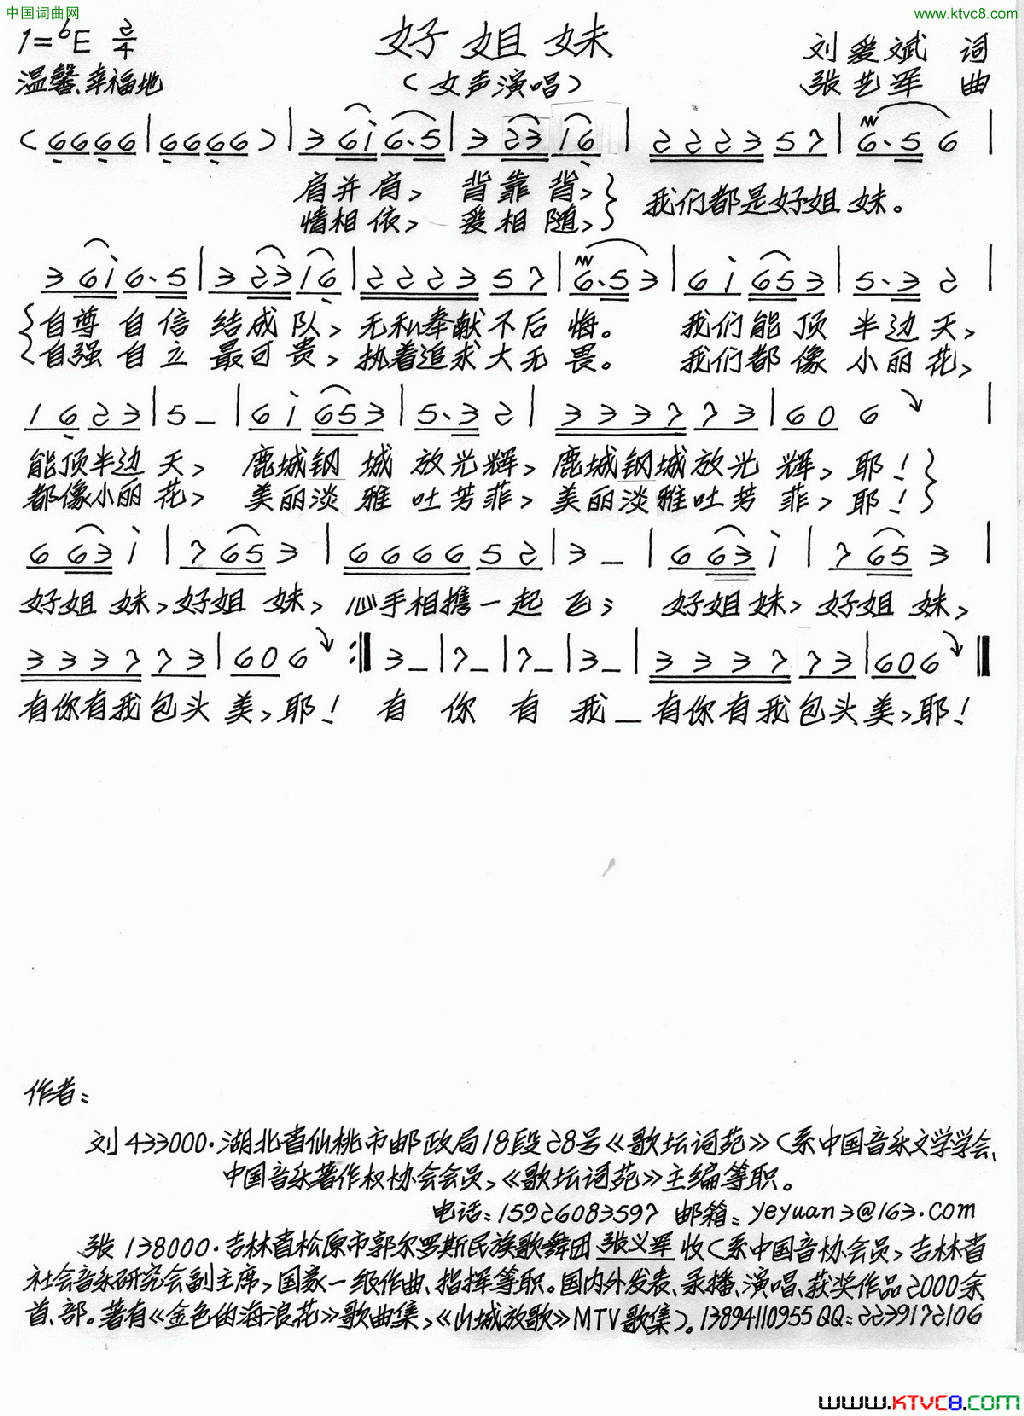 中国词曲网
www.ktvc8.com
1=♭E 2/4
好姐妹
刘爱斌 词
温馨、幸福地
（女声演唱）
张艺军 曲
(6666|6666)|3 6i 6·5|3 23 16|2223 57|6·5 6|
肩并肩，背靠背，} 我们都是好姐妹。
情相依，爱相随，}
3 6i 6·5|3 23 16|2223 57|6·5 3|6i 653|5·3 2|
{自尊自信结成队，无私奉献不后悔。 我们能顶半边天，
自强自立最可贵，执着追求大无畏。 我们都像小丽花，
1623|5–|6i 653|5·3 2|3337 73|60 6|
能顶半边天，鹿城钢城放光辉，鹿城钢城放光辉，耶！}
都像小丽花，美丽淡雅吐芳菲，美丽淡雅吐芳菲，耶！
6 63 i|7 65 3|6666 52|3–|6 63 i|7 65 3|
好姐妹，好姐妹，心手相携一起飞； 好姐妹，好姐妹，
3337 73|60 6:‖3–|7–|7–|3–|3337 73|60 6‖
有你有我包头美，耶！有你有我–有你有我包头美，耶！
作者：
刘 433000·湖北省仙桃市邮政局18段28号《歌坛词苑》（系中国音乐文学学会、
中国音乐著作权协会会员，《歌坛词苑》主编等职。
电话：15926083597 邮箱：yeyuan3@163.com
张 138000·吉林省松原市郭尔罗斯民族歌舞团张义军收（系中国音协会员，吉林省
社会音乐研究会副主席，国家一级作曲、指挥等职。国内外发表、录播、演唱、获奖作品2000余
首、部。著有《金色的海浪花》歌曲集，《山城放歌》MTV歌集）。13894110955 QQ：2239172106
www.KTVC8.com